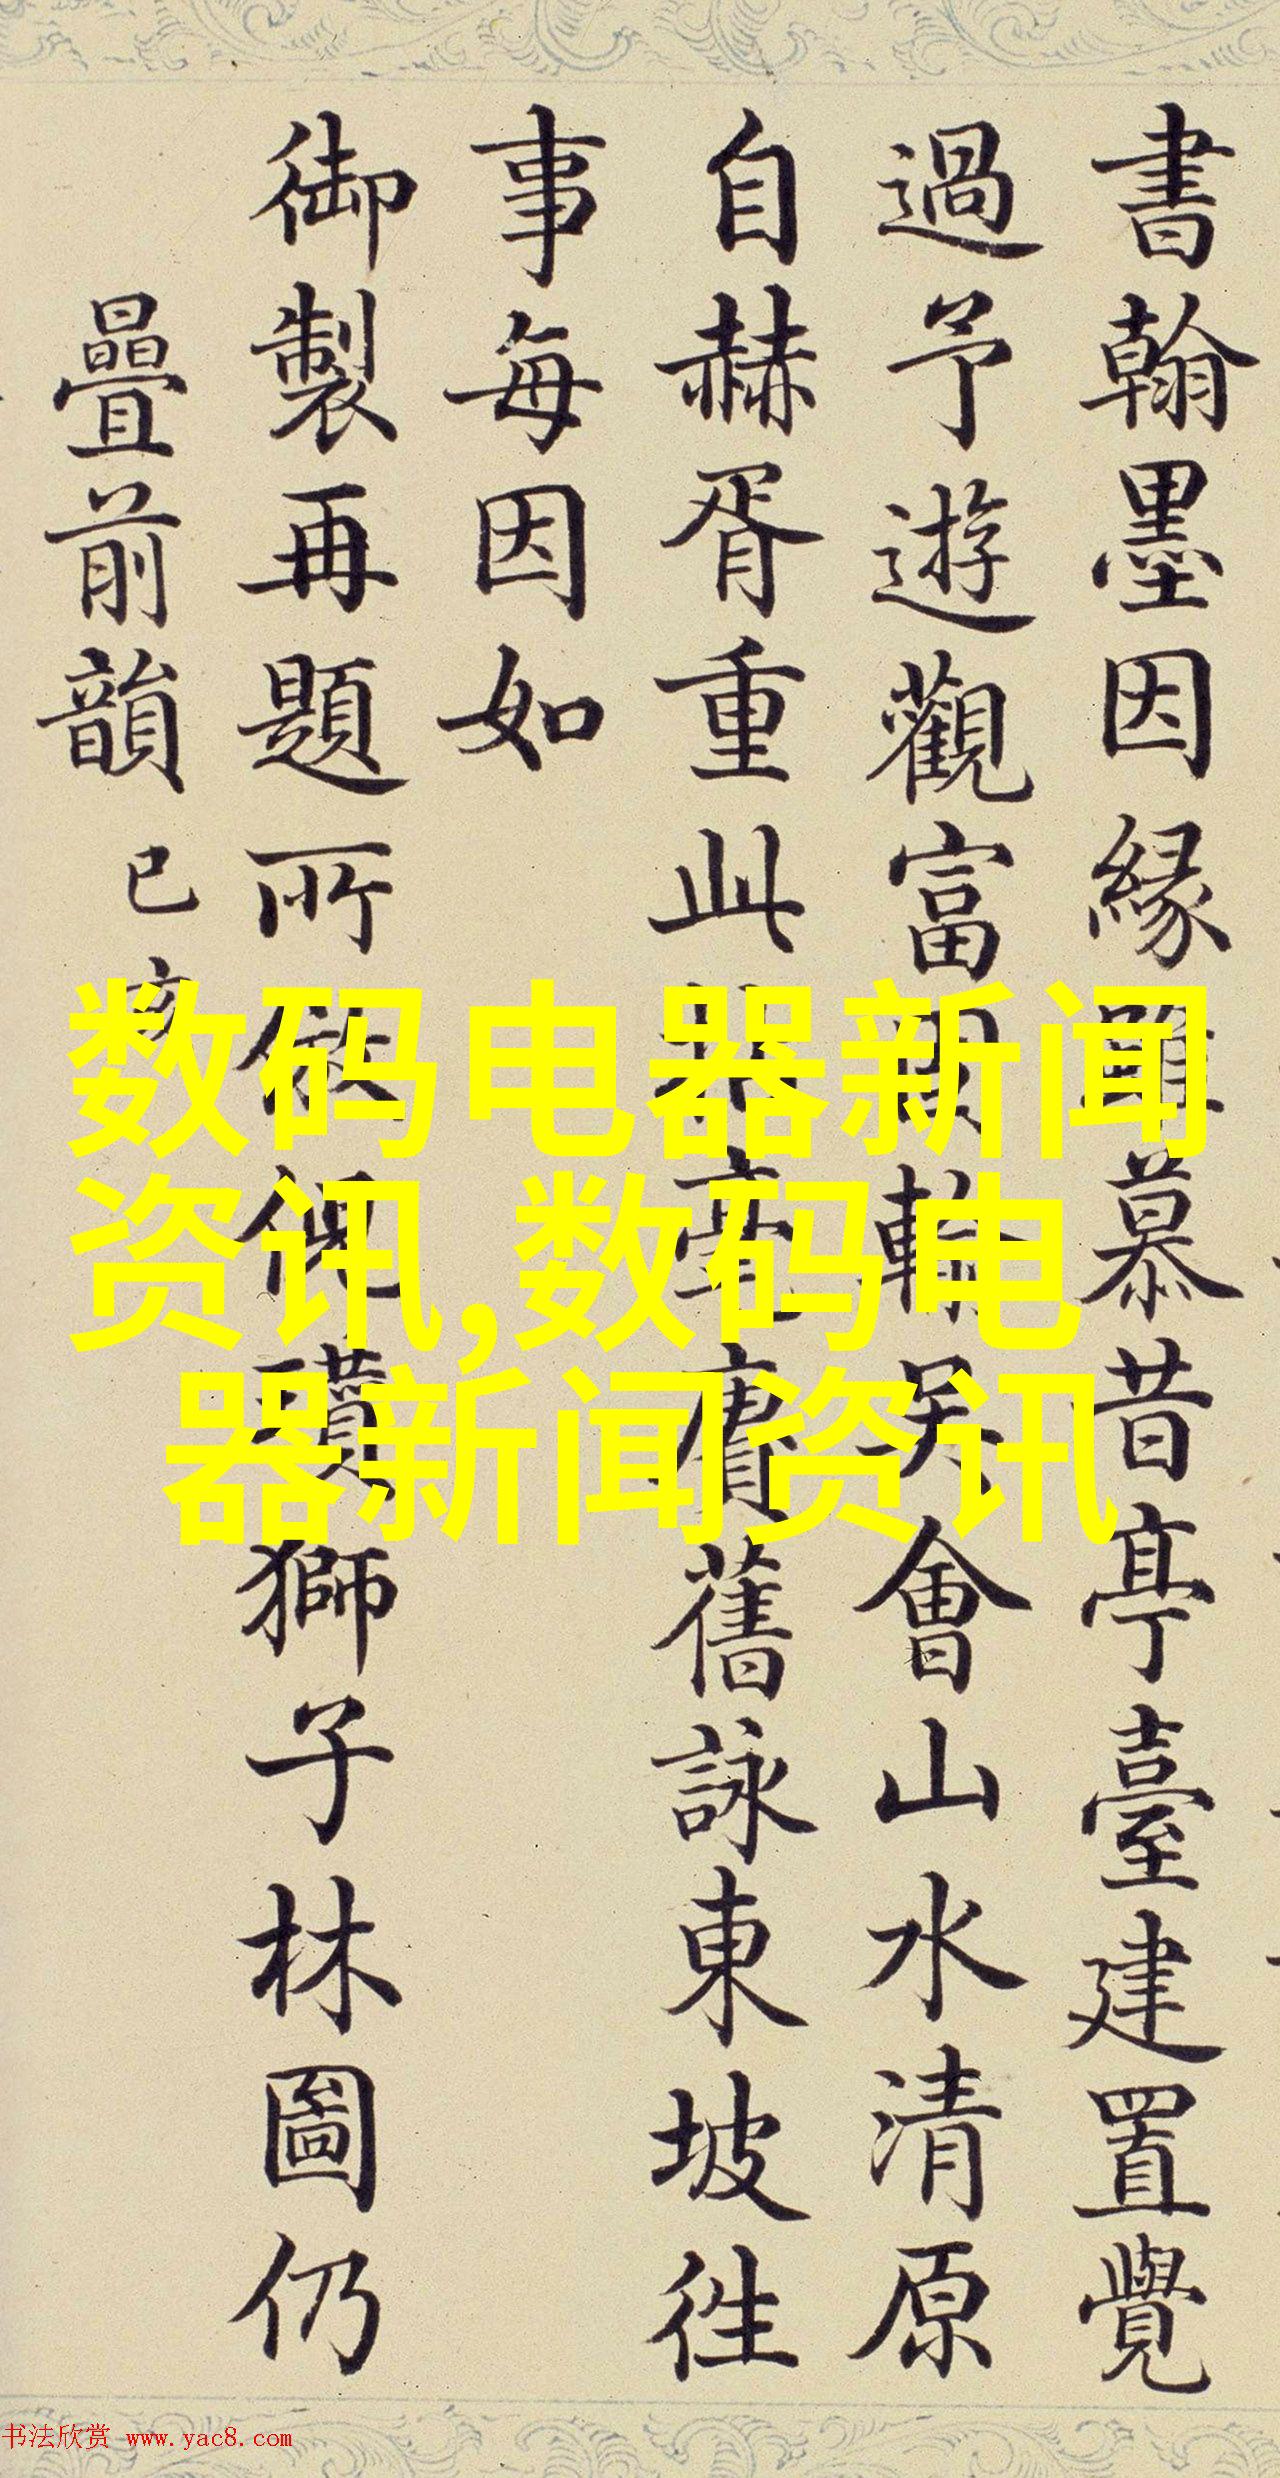 書翰墨因緣雖慕昔亭臺建置覺
過予遊觀富輸吳會山水清原
自赫胥重此毫賡舊詠東坡徃
事每因如
御製再題所倣倪瓚獅子林圖仍
疊前韻
已亥
数码电器新闻
资讯,数码电
器新闻资讯
书法欣赏 www.yac8.com